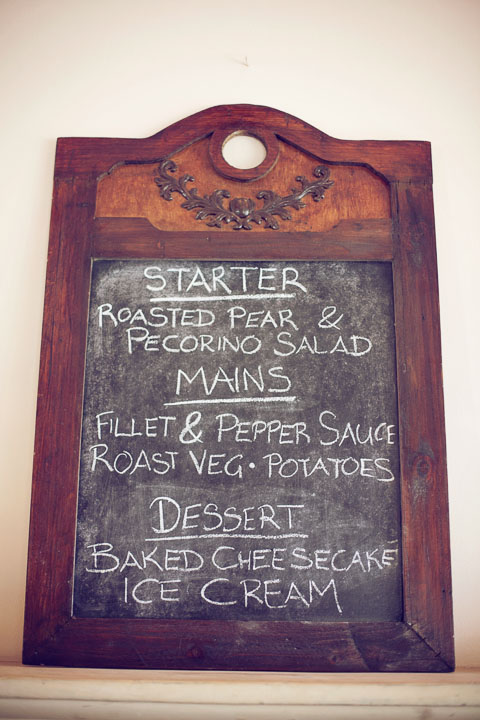 STARTER
ROASTED PEAR &
PECORINO SALAD
MAINS
FILLET & PEPPER SAUCE
ROAST VEG · POTATOES
DESSERT
BAKED CHEESECAKE
ICE CREAM